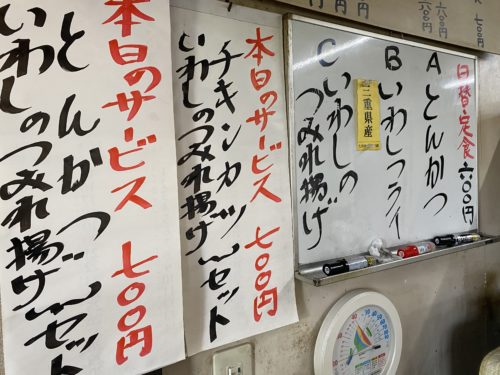 日替定食 六〇〇円
A とんかつ
B いわしフライ
三重県産
C いわしの
つみれ揚げ
本日のサービス 七〇〇円
チキンカツ
いわしのつみれ揚げ セット
本日のサービス 七〇〇円
とんかつ
いわしのつみれ揚げ セット